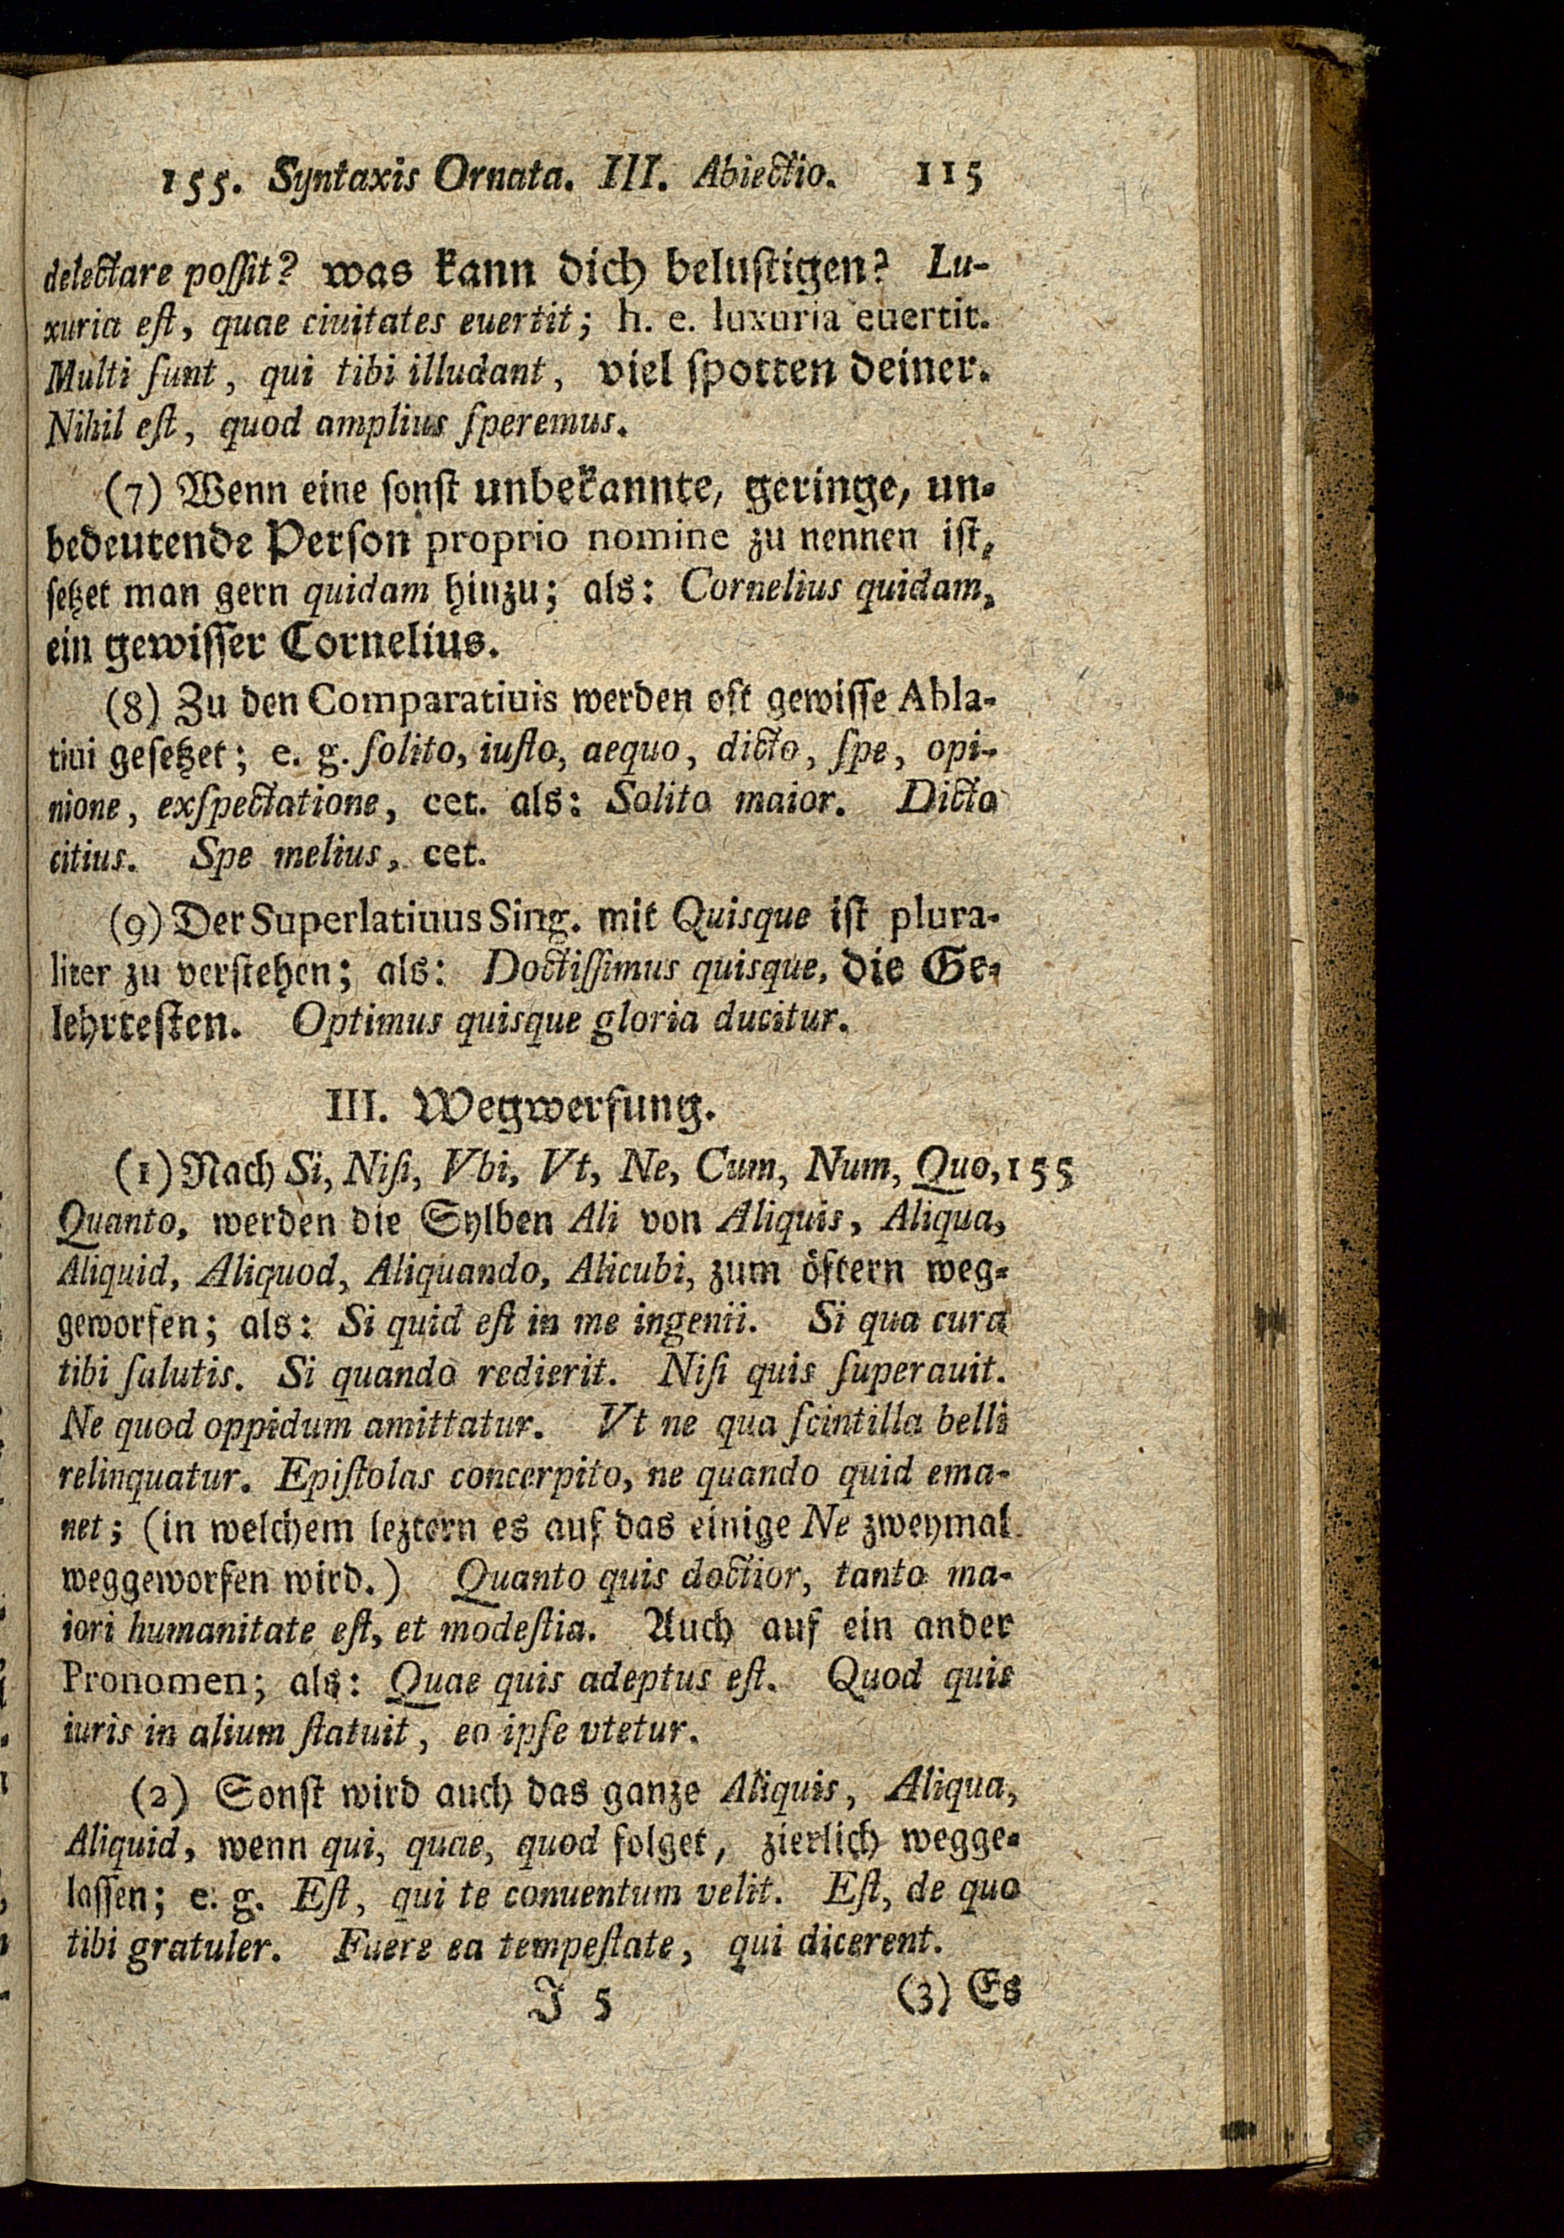 155. Syntaxis Ornata. III. Abiectio. 115
delectare possit? was kann dich belustigen? Lu-
xuria est, quae ciuitates euertit; h. e. luxuria euertit.
Multi sunt, qui tibi illudant, viel spotten deiner.
Nihil est, quod amplius speremus.
(7) Wenn eine sonst unbekannte, geringe, un-
bedeutende Person proprio nomine zu nennen ist,
setzet man gern quidam hinzu; als: Cornelius quidam,
ein gewisser Cornelius.
(8) Zu den Comparatiuis werden oft gewisse Abla-
tiui gesetzet; e. g. solito, iusto, aequo, dicto, spe, opi-
nione, exspectatione, cet. als: Solito maior. Dicto
citius. Spe melius, cet.
(9) Der Superlatiuus Sing. mit Quisque ist plura-
liter zu verstehen; als: Doctissimus quisque, die Ge-
lehrtesten. Optimus quisque gloria ducitur.
III. Wegwerfung.
(1) Nach Si, Nisi, Vbi, Vt, Ne, Cum, Num, Quo, 155
Quanto, werden die Sylben Ali von Aliquis, Aliqua,
Aliquid, Aliquod, Aliquando, Alicubi, zum öftern weg-
geworfen; als: Si quid est in me ingenii. Si qua cura
tibi salutis. Si quando redierit. Nisi quis superauit.
Ne quod oppidum amittatur. Vt ne qua scintilla belli
relinquatur. Epistolas concerpito, ne quando quid ema-
net; (in welchem leztern es auf das einige Ne zweymal
weggeworfen wird.) Quanto quis doctior, tanto ma-
iori humanitate est, et modestia. Auch auf ein ander
Pronomen; als: Quae quis adeptus est. Quod quis
iuris in alium statuit, eo ipse vtetur.
(2) Sonst wird auch das ganze Aliquis, Aliqua,
Aliquid, wenn qui, quae, quod folget, zierlich wegge-
lassen; e. g. Est, qui te conuentum velit. Est, de quo
tibi gratuler. Fuere ea tempestate, qui dicerent.
J 5 (3) Es